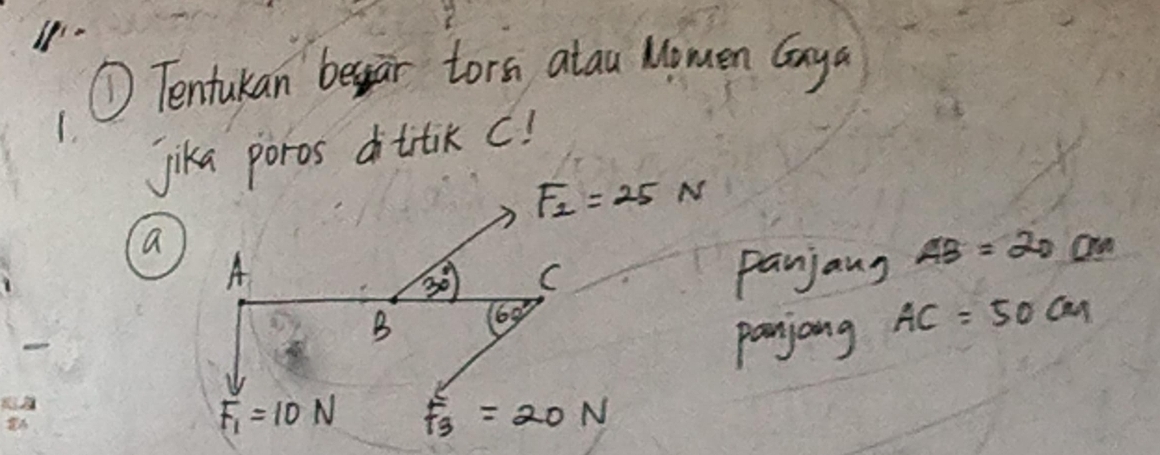 ① Tentukan besar torsi atau Momen Gaya
1.
jika poros di titik C!
ⓐ
F₂ = 25 N
A
30°
C
B
60°
F₁ = 10 N
F₃ = 20 N
panjang AB = 20 cm
panjang AC = 50 cm